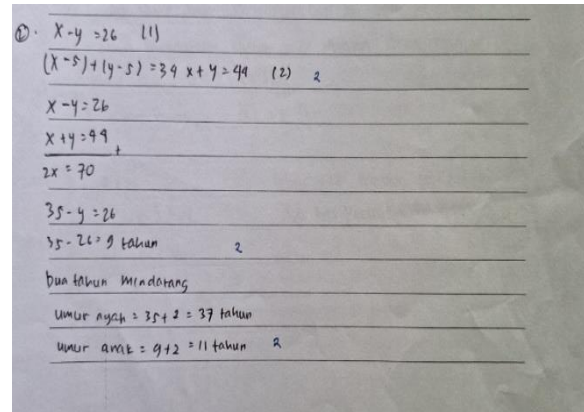 ②. x-y=26 (1)
(x-5)+(y-5)=34 x+y=44 (2) 2
x-y=26
x+y=44
+
2x=70
35-y=26
35-26=9 tahun 2
Dua tahun mendatang
umur ayah = 35+2 = 37 tahun
umur anak = 9+2 = 11 tahun 2